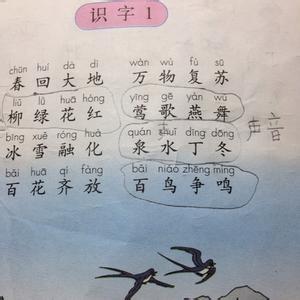 识字1
chūn huí dà dì wàn wù fù sū
春回大地 万物复苏
liǔ lǜ huā hóng yīng gē yàn wǔ
柳绿花红 莺歌燕舞
声音
bīng xuě róng huà quán shuǐ dīng dōng
冰雪融化 泉水丁冬
bǎi huā qí fàng bǎi niǎo zhēng míng
百花齐放 百鸟争鸣